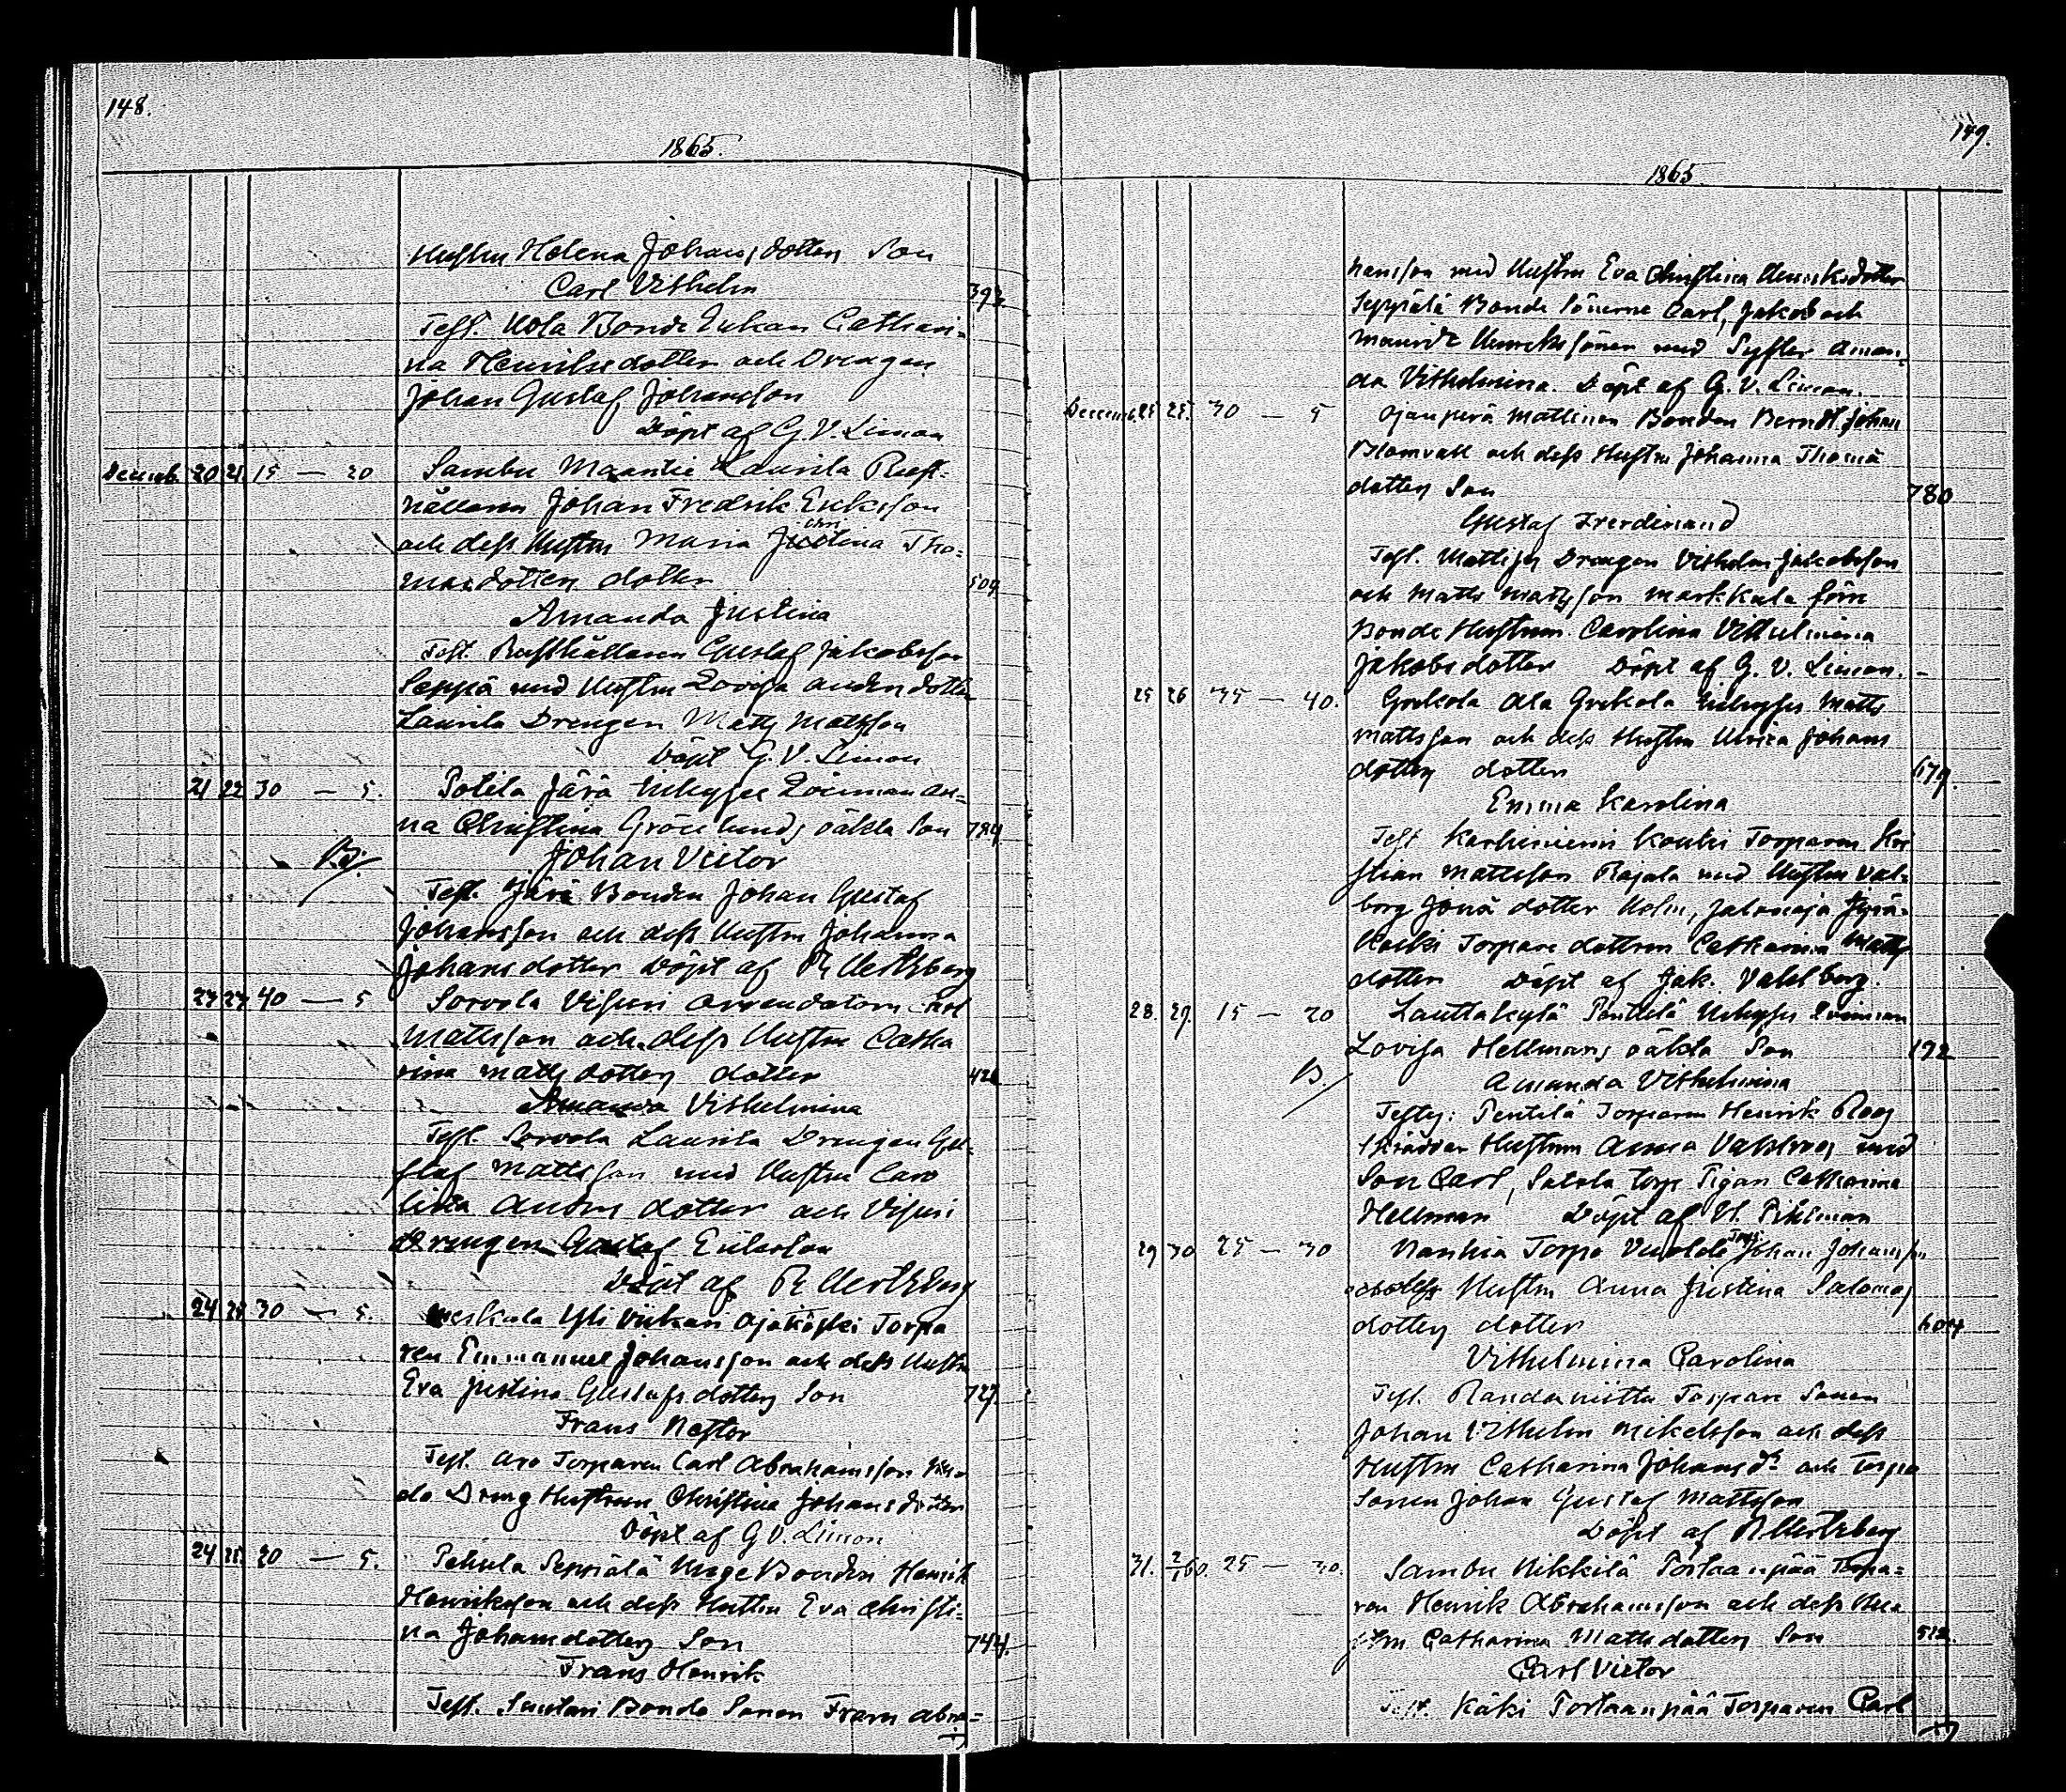 148.
1865.
Hustru Helena Johansdotters Son
Carl Vilhelm 393.
Test. Kola Bonde Enkan Cathari-
na Henriksdotter och Drengen
Johan Gustaf Johansson
Döpt af G. V. Limon
Decemb. 20 21. 15 — 20 Sambu Maantie Laurila Rust-
hållaren Johan Fredrik Eriksson
och dess Hustru Maria Justina Tho-
masdotters dotter 509
Amanda Justina
Test. Rusthållaren Gustaf Jakobsson
Seppä med Hustru Lovisa Andersdotter
Laurila Drengen Matts Mattsson
Döpt G. V. Limon
21 22 30 — 5. Potila Järä Inhyses Qvinnan An-
na Christina Grönlunds oäkta Son 784
Johan Victor
Test. Järä Bonden Johan Gustaf
Johansson och dess Hustru Johanna
Johansdotter Döpt af R Hertzberg
23 27 40 — 5 Sorvola Visuri Arrendatorn Carl
Mattsson och dess Hustru Catha
rina Mattsdotters dotter 426
Amanda Vilhelmina
Test. Sorvola Laurila Drengen Gu-
staf Mattsson med Hustru Caro
lina Anders dotter och Visuri
Drengen Gustaf Eriksson
Döpt af R Hertzberg
24 25 30 — 5. Meskala Yli Viikari Ojakoski Torpa
ren Emmanuel Johansson och dess Hustru
Eva Justina Gustafsdotters Son 727.
Frans Nestor
Test. Aro Torparen Carl Abrahamsson
Dreng Hustrun Christina Johansdotter
Döpt af G V. Limon
24 25. 20 — 5. Pehula Seppälä Unge Bonden Henrik
Henriksson och dess Hustru Eva Christi-
na Johansdotters Son 744.
Frans Henrik
Test. Suutari Bonde Sonen Frans Abra-
149.
1865
hamsson med Hustru Eva Christina Henriksdotter
Seppälä Bonde Sönerne Carl, Jakob och
Mauritz Henrikssöner med Syster Aman-
da Vilhelmina. Döpt af G. V. Limon.
Decemb. 25 25. 30 — 5 Ojanperä Mattinen Bonden Berndt Johan
Blomvall och dess Hustru Johanna Thomä
dotters Son 780
Gustaf Frerdinand
Test. Drengen Vilhelm Jakobsson
och Matts Mattsson Markkula förre
Bonde Hustrun Carolina Vilhelmina
Jakobsdotter Döpt af G. V. Limon.
25 26 35 — 40. Grekola Ala Grekola Inhyses Matts
Mattsson och dess Hustru Ulrica Johans
dotters dotter 679.
Emma Karolina
Test Karhiniemi Kouhi Torparen Kri
stian Mattsson Rajala med Hustru Val-
borg Jonä dotter Holm, Jalonoja
Torpare dottren Catharina Matts
dotter Döpt af Jak. Vahlberg.
28. 29. 15 — 20 Lauttakylä Penttilä Inhyses Qvinnan
Lovisa Hellmans oäkta Son 192
Amanda Vilhelmina
Testes: Pentilä Torparen Henrik Roos
Skräddar Hustrun Anna med
Son Carl, Satola torp Pigan Catharina
Hellman Döpt af H. Pihlman
29 30 25 — 30 Nanhia Torpo Vuolle Torp. Johan Johansson
och dess Hustru Anna Justina Salomos
dotters dotter 604
Vilhelmina Carolina
Test. Randaniittu Torpare Sonen
Johan Vilhelm Mikelsson och dess
Hustru Catharina Johans dr och Torpa
Sonen Johan Gustaf Mattsson
Döpt af R Hertzberg
31. 2/1 60. 25 — 30. Sambu Nikkilä Portaanpää Torpa-
ren Henrik Abrahamsson och dess Hu
stru Catharina Mattsdotters Son 512.
Carl Victor
Test. Käki Portaanpää Torparen Carl